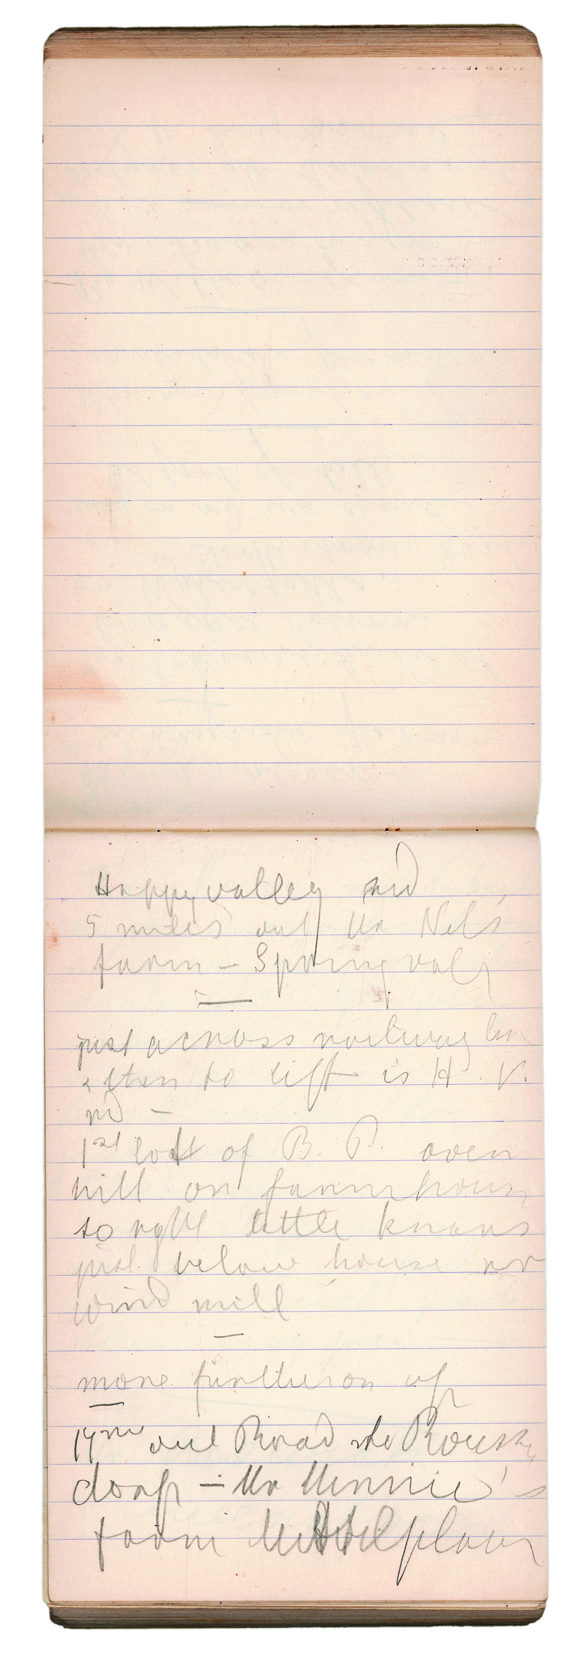 Happy valley rd
5 miles out Mr Nel's
farm – Spring valy
—
just across railway line
often to left is H. V.
rd –
1st lot of B. P. over
hill on farmhouse
to right little knows
just below house nr
wind mill
—
more further on up
—
out Road to
dorp – Mr Minnie's
farm Middelplaas